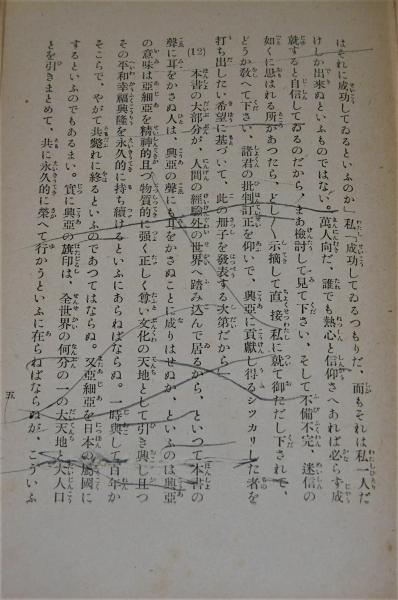 はそれに成功してゐるといふのか」「私は成功してゐるつもりだ、而もそれは私一人だ
けしか出來ぬといふものではない。萬人向だ、誰でも熱心と信仰さへあれば必らず成
就すると自信してゐるのだから、まあ檢討して見て下さい、そして不備不完、迷信の
如くに思はれる所があつたら、どし〳〵示摘して直接私に就て御ただし下されて、
どうか敎へて下さい、諸君の批判訂正を仰いで、興亞に貢獻し得るシツカリした者を
打ち出したい希望に基づいて、此の册子を發表する次第だから――
(12) 本書の大部分が、人間の經驗外の世界へ踏み込んで居るから、といつて本書の
聲に耳をかさぬ人は、興亞の聲にも耳をかさぬことに成りはせぬか、といふのは興亞
の意味は亞細亞を精神的且つ物質的に强く正しく尊い文化の天地として引き興し且つ
その平和幸福興隆を永久的に持ち續けるといふにあらねばならぬ。一時興して百年か
そこらで、やがて共斃れに終るといふのであつてはならぬ。又亞細亞を日本の屬國に
するといふのでもあるまい。實に興亞の旗印は、全世界の何分の一の大天地と大人口
とを引きまとめて、共に永久的に榮へて行かうといふに在らねばならぬが、こういふ
五